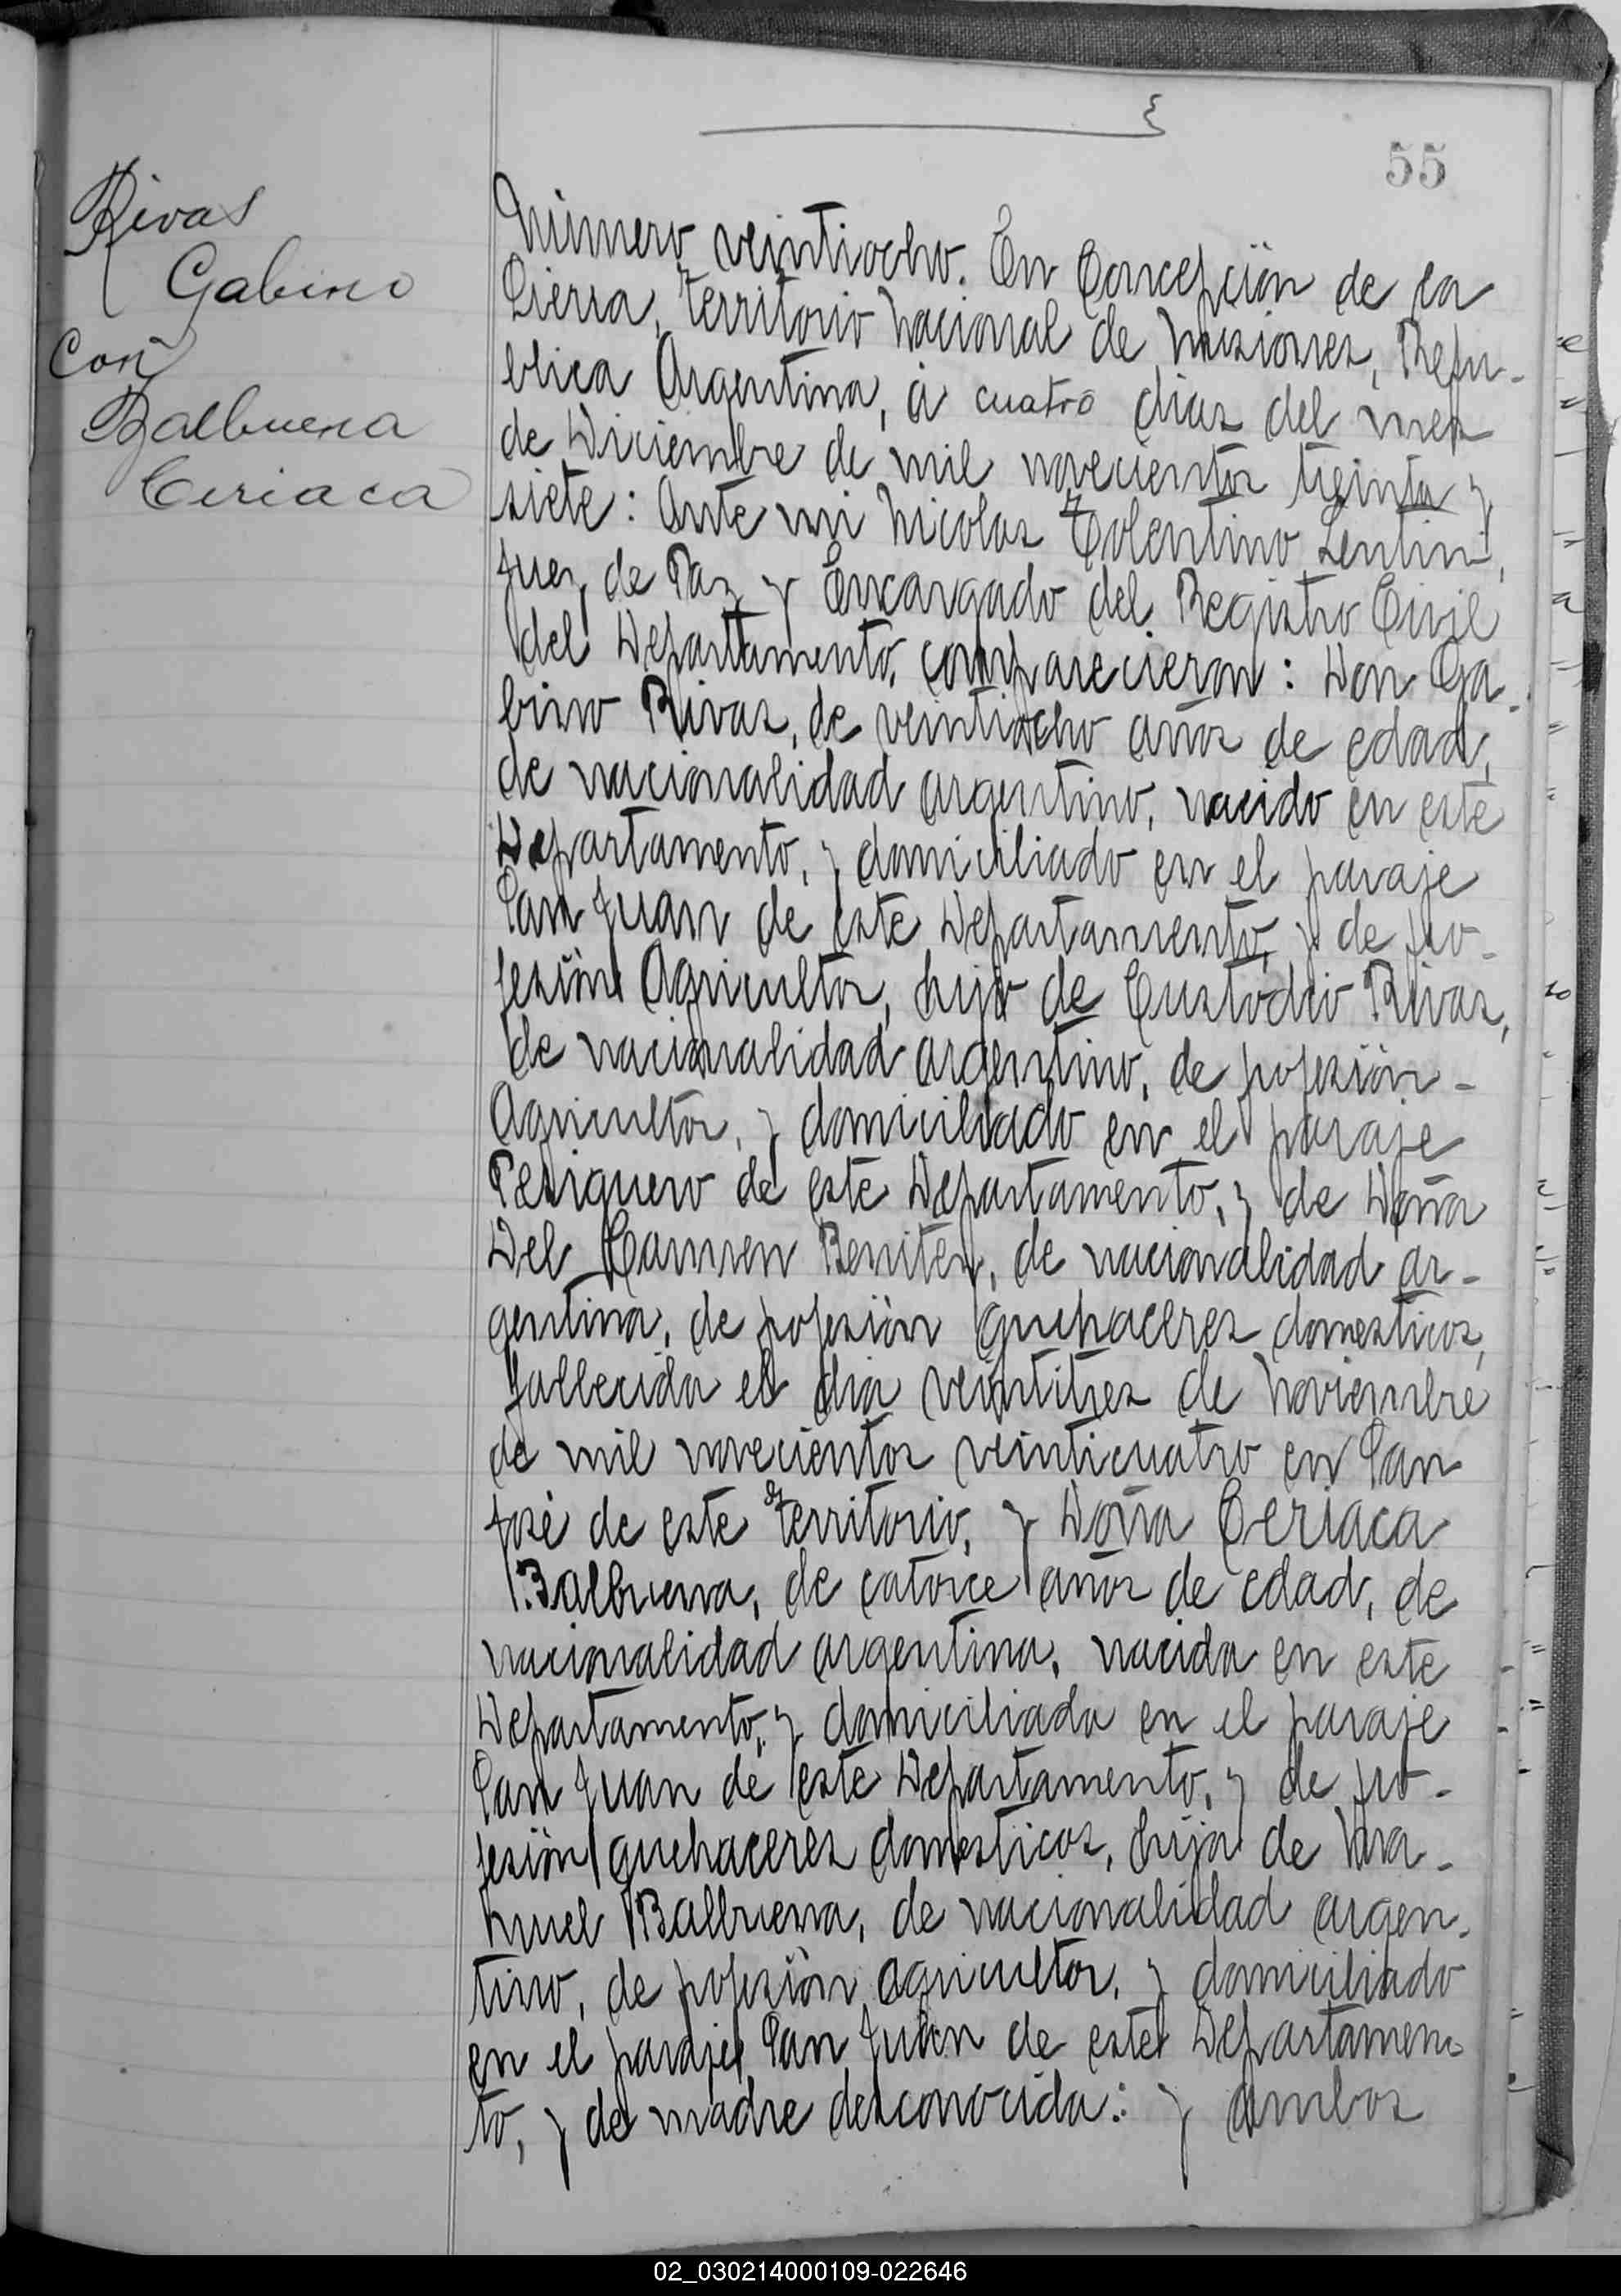 55
Rivas
Gabino
Con
Balbuena
Ceriaca
Número veintiocho. En Concepción de la
Sierra, Territorio Nacional de Misiones, Repu-
blica Argentina, á cuatro dias del mes
de Diciembre de mil novecientos treinta y
siete: Ante mi Nicolas Tolentino Lentini,
Juez de Paz y Encargado del Registro Civil
del Departamento, comparecieron: Don Ga-
bino Rivas, de veintiocho años de edad,
de nacionalidad argentino, nacido en este
Departamento, y domiciliado en el paraje
San Juan de este Departamento, y de pro-
fesión Agricultor, hijo de Custodio Rivas,
de nacionalidad argentino, de profesión-
Agricultor, y domiciliado en el paraje
Persiguero de este Departamento, y de Doña
Del Carmen Benitez, de nacionalidad ar-
gentina, de profesión quehaceres domesticos,
fallecida el dia veintitres de Noviembre
de mil novecientos veinticuatro en San
José de este Territorio, y Doña Ceriaca
Balbuena, de catorce años de edad, de
nacionalidad argentina, nacida en este
Departamento, y domiciliada en el paraje
San Juan de este Departamento, y de pro-
fesión quehaceres domesticos, hija de Ma-
nuel Balbuena, de nacionalidad argen-
tino, de profesión agricultor, y domiciliado
en el paraje San Juan de este Departamen-
to, y de madre desconocida: y ambos
02_030214000109-022646